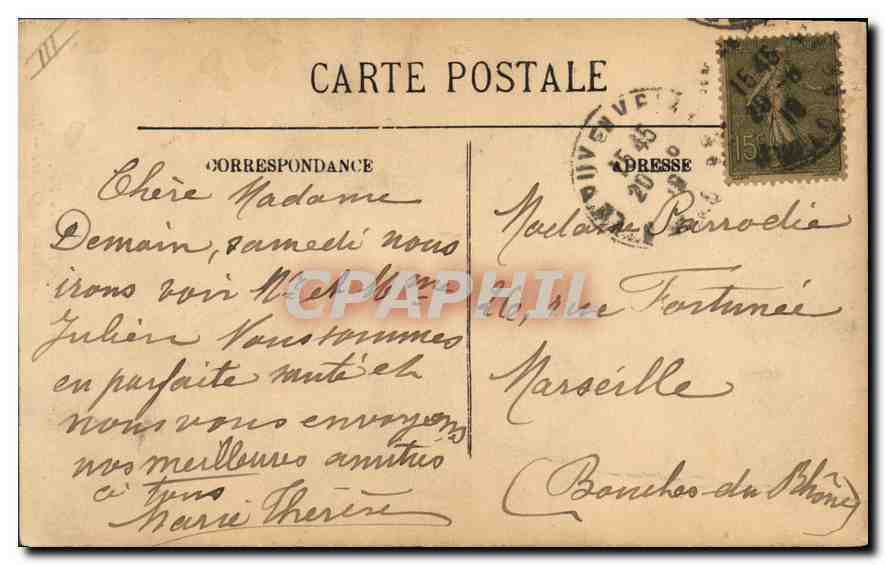 III
CARTE POSTALE
CORRESPONDANCE
Chère Madame
Demain, samedi nous
irons voir Mr et Mme
Julien Nous sommes
en parfaite santé et
nous vous envoyons
nos meilleures amitiés
à tous
Marie Thérèse
ADRESSE
Madame Parrodie
26, rue Fortunée
Marseille
(Bouches-du-Rhône)
15 45
20
15 45
15c
CPAPHIL